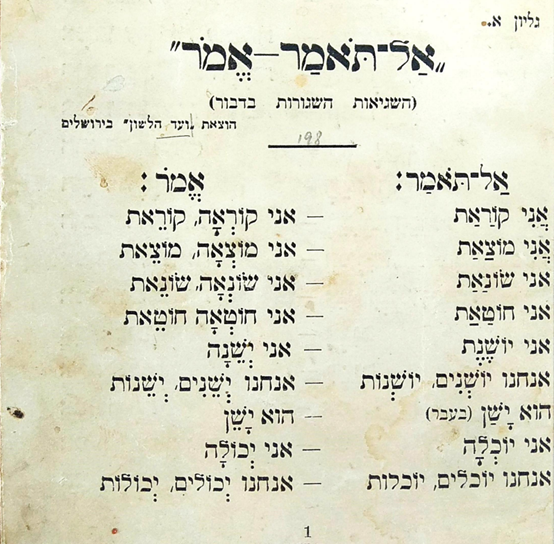 גליון א.
„אַל־תֹּאמַר—אֱמֹר"
(השגיאות השגורות בדבור)
הוצאת „ועד הלשון" בירושלים
198
אַל־תֹּאמַר: אֱמֹר:
אֲנִי קוֹרַאַת — אני קוֹרְאָה, קוֹרֵאת
אֲנִי מוֹצַאַת — אני מוֹצְאָה, מוֹצֵאת
אני שׂוֹנַאַת — אני שׂוֹנְאָה, שׂוֹנֵאת
אני חוֹטַאַת — אני חוֹטְאָה חוֹטֵאת
אני יוֹשֶׁנֶת — אני יְשֵׁנָה
אנחנו יוֹשְׁנִים, יוֹשְׁנוֹת — אנחנו יְשֵׁנִים, יְשֵׁנוֹת
הוא יָשַׁן (בעבר) — הוא יָשֵׁן
אני יוֹכְלָה — אני יְכוֹלָה
אנחנו יוֹכלים, יוֹכלות — אנחנו יְכוֹלים, יְכוֹלוֹת
1